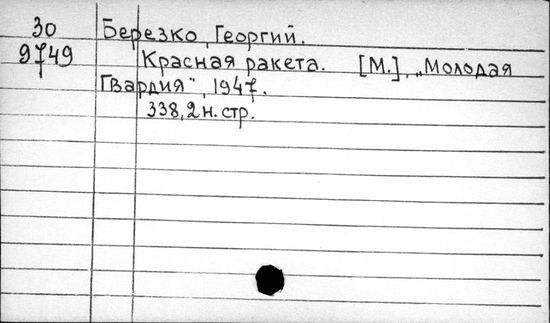 30 Березко, Георгий.
9749 Красная ракета. [М.], „Молодая
Гвардия", 1947.
338,2 н. стр.